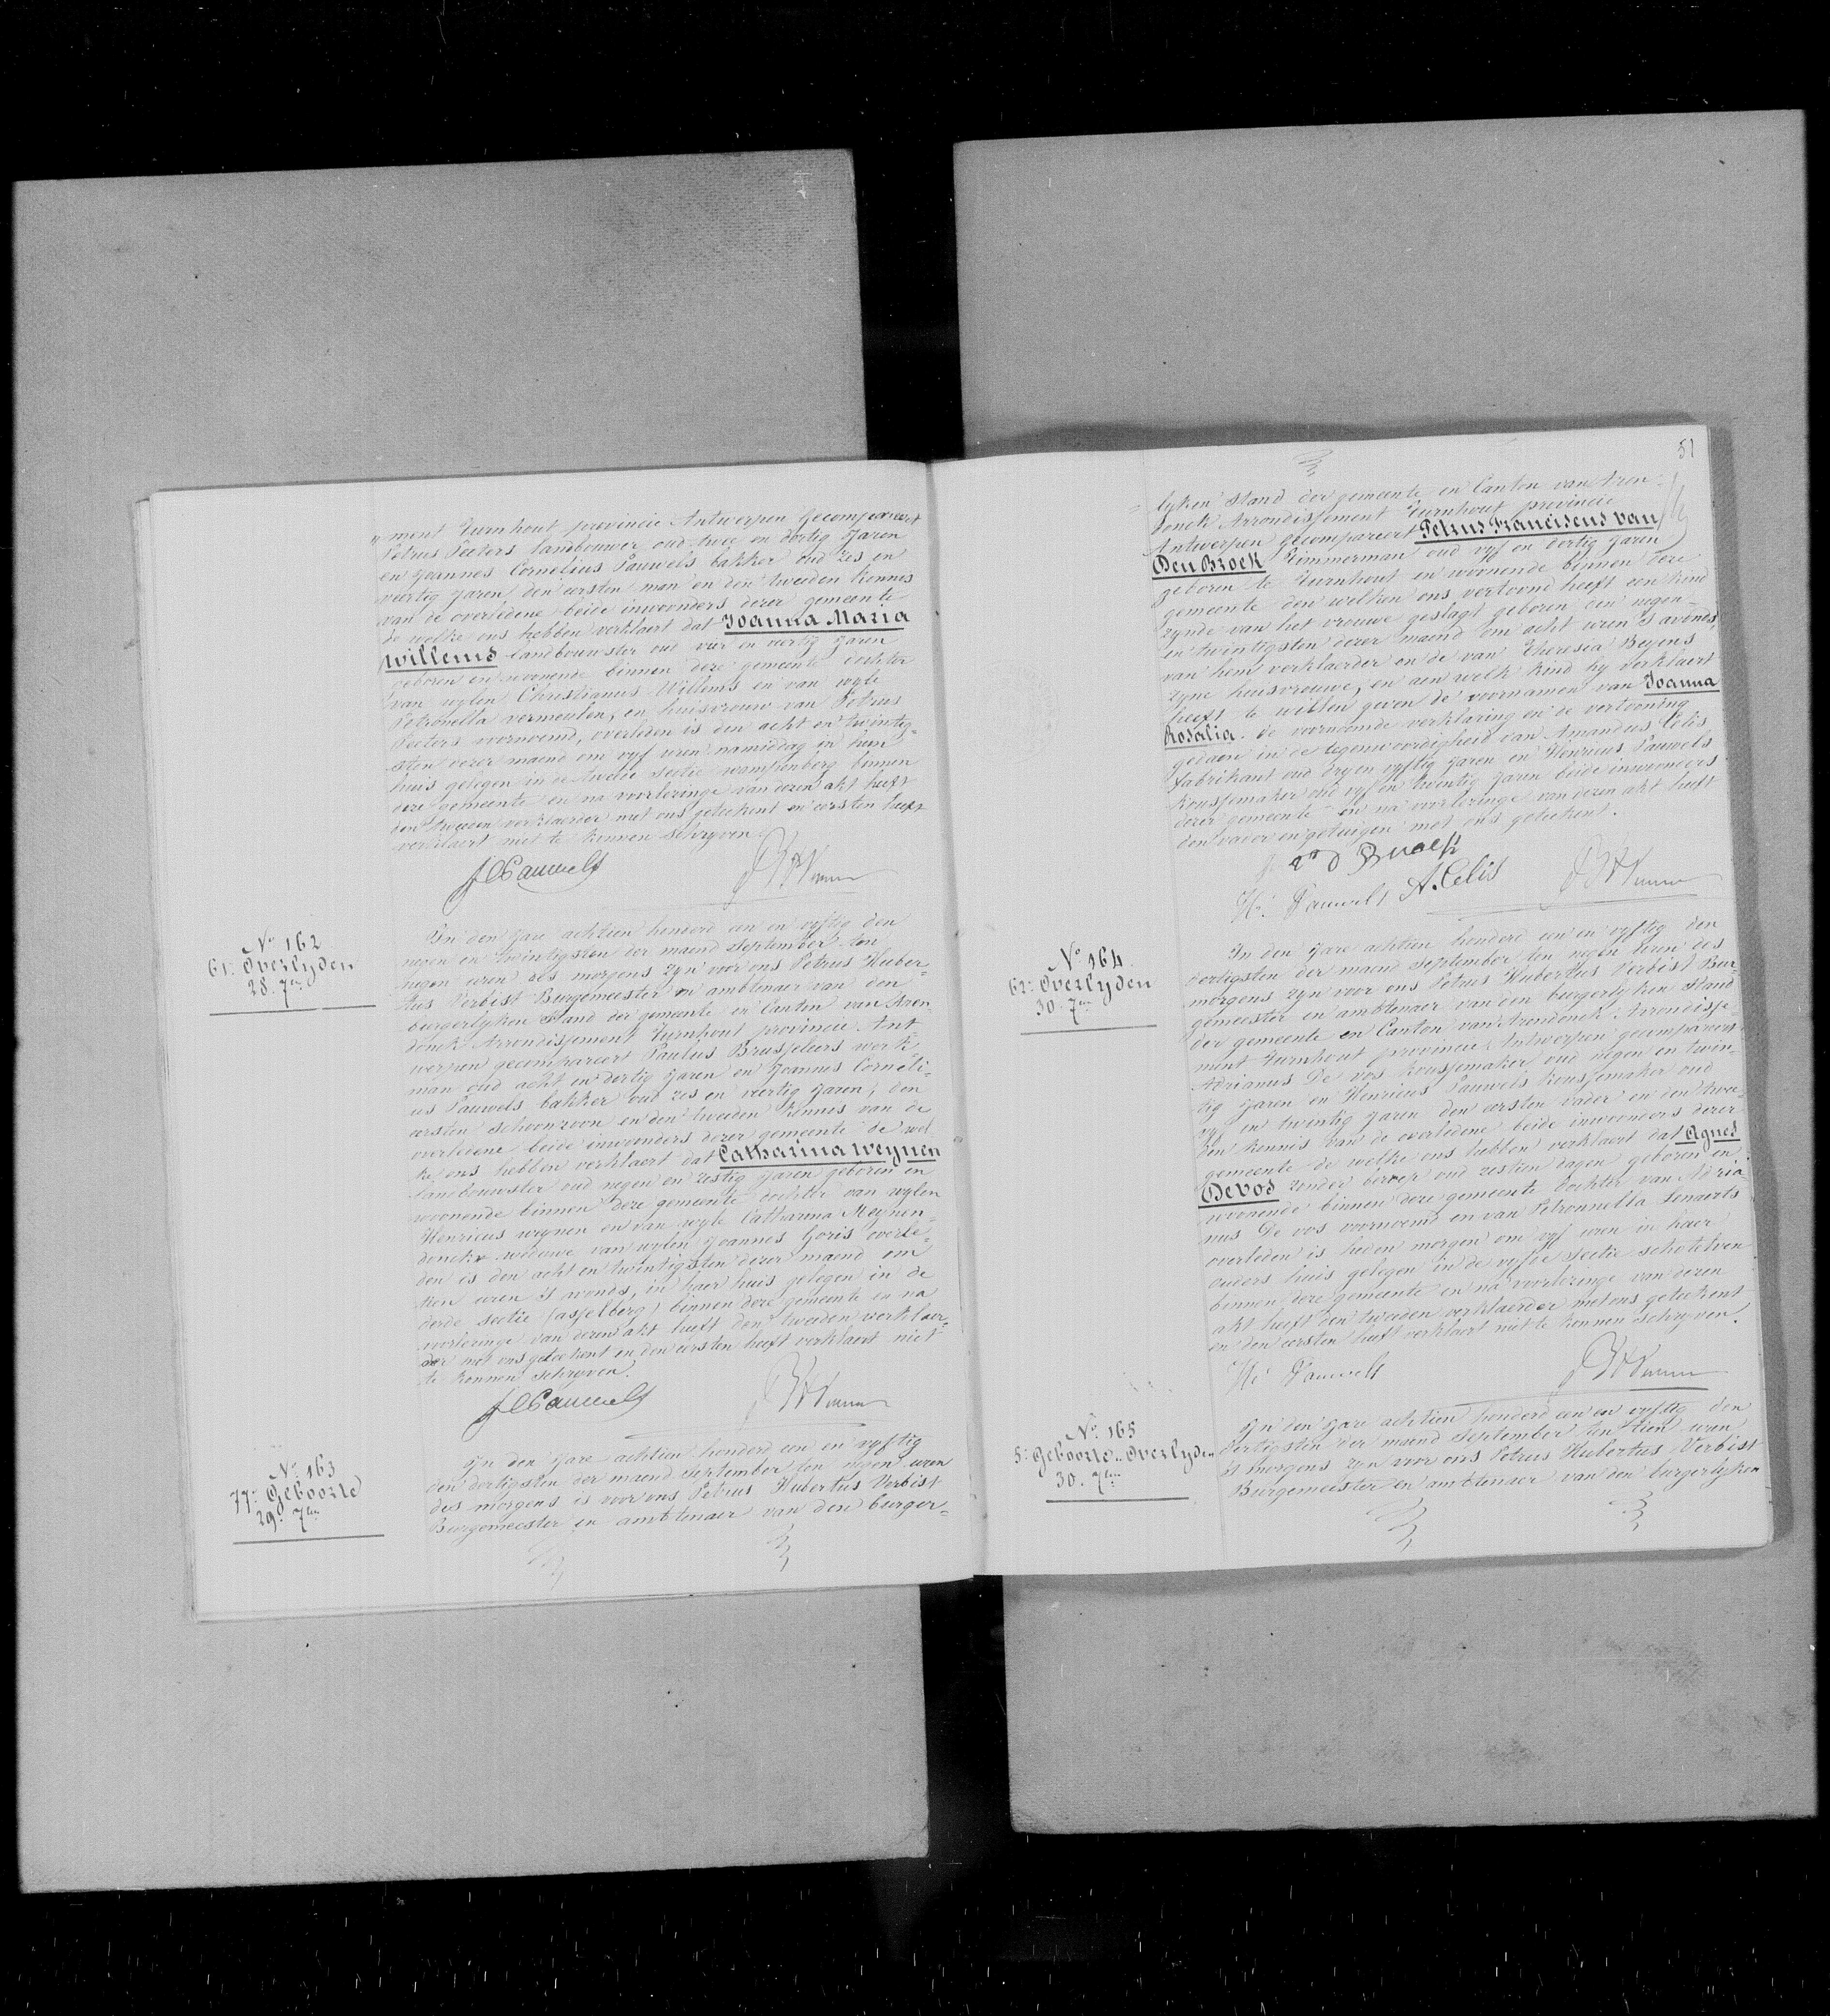 ment Turnhout provincie Antwerpen Gecompareert
Petrus Peeters landbouwer oud twee en dertig Jaren
en Joannes Cornelius Pauwels bakker oud zes en
veertig Jaren, den eersten man en den tweeden kennis
van de overledene beide inwoonders dezer gemeente
de welke ons hebben verklaert dat Joanna Maria
Willems landbouwster oud vier en veertig Jaren
geboren en woonende binnen deze gemeente dochter
van wylen Christianus Willems en van wyle
Petronella vermeulen, en huisvrouw van Petrus
Peeters voornoemd, overleden is den acht en twintig-
sten dezer maend om vyf uren namiddag in hun
huis gelegen in de tweede sectie wampenberg binnen
deze gemeente en na voorlezinge van dezen akt heeft
den tweeden verklaerder met ons geteekent en eersten heeft
verklaert niet te konnen schryven.
JCPauwels
No 162
61e Overlyden
28. 7ber
In den Jare achtien honderd een en vyftig den
negen en twintigsten der maend September ten
negen uren des morgens zyn voor ons Petrus Huber-
tus Verbist Burgemeester en ambtenaer van den
burgerlyken Stand der gemeente en Canton van Aren-
donck Arrondissement Turnhout provincie Ant-
werpen gecompareert Paulus Brusseleers werk-
man oud acht en dertig Jaren en Joannes Corneli-
us Pauwels bakker oud zes en veertig Jaren, den
eersten schoonzoon en den tweeden kennis van de
overledene beide inwoonders dezer gemeente de wel-
ke ons hebben verklaert dat Catharina Weynen
landbouwster oud negen en zestig Jaren geboren en
woonende binnen deze gemeente dochter van wylen
Henricus weynen en van wyle Catharina Meynen-
donckx weduwe van wylen Joannes Goris overle-
den is den acht en twintigsten dezer maend om
tien uren 's avonds, in haer huis gelegen in de
derde sectie (asselberg) binnen deze gemeente en na
voorlezinge van dezen akt heeft den tweeden verklaer-
der met ons geteekent en den eersten heeft verklaert niet
te konnen schryven.
JCPauwels
No 163
77e Geboorte
29. 7ber
In den Jare achtien honderd een en vyftig
den dertigsten der maend September ten negen uren
des morgens is voor ons Petrus Hubertus Verbist
Burgemeester en ambtenaer van den burger-
51
lyken Stand der gemeente en Canton van Aren-
donck Arrondissement Turnhout provincie
Antwerpen gecompareert Petrus Franciscus Van
Den Broek Timmerman oud vyf en dertig Jaren
geboren te Turnhout en woonende binnen deze
gemeente den welken ons vertoond heeft een kind
zynde van het vrouwe geslagt geboren den negen-
en twintigsten dezer maend om acht uren 's avonds,
van hem verklaerder en de van Theresia Beyens
zyne huisvrouwe, en aen welk kind hy verklaert
heeft te willen geven de voornamen van Joanna
Rosalia. de voornoemde verklaring en de vertooning
gedaen in de tegenwoordigheid van Amandus Celis
fabrikant oud dry en vyftig Jaren en Henricus Pauwels
kousjemaker oud vyf en twintig Jaren beide inwoonders
dezer gemeente en na voorlezinge van dezen akt heeft
den vader en getuigen met ons geteekent.
vnd Broek
Hi Pauwels A. Celis
No 164
62e Overlyden
30. 7ber
In den Jare achtien honderd een en vyftig den
dertigsten der maend September ten negen uren des
morgens zyn voor ons Petrus Hubertus Verbist Bur-
gemeester en ambtenaer van den burgerlyken Stand
der gemeente en Canton van Arendonck Arrondisse-
ment Turnhout provincie Antwerpen gecompareert
Adrianus De vos kousjemaker oud negen en twin-
tig Jaren en Henricus Pauwels kousjemaker oud
vyf en twintig Jaren den eersten vader en den twee-
den kennis van de overledene beide inwoonders dezer
gemeente de welke ons hebben verklaert dat Agnes
Devos zonder beroep oud zestien dagen geboren en
woonende binnen deze gemeente dochter van Adria-
nus De vos voornoemd en van Petronnella Lenaerts
overleden is heden morgen om vyf uren in haer
ouders huis gelegen in de vyfde sectie schotelven
binnen deze gemeente en na voorlezinge van dezen
akt heeft den tweeden verklaerder met ons geteekent
en den eersten heeft verklaert niet te konnen schryven.
Hi Pauwels
No 165
5e Geboorte-Overlyden
30. 7ber
In den Jare achtien honderd een en vyftig den
dertigsten der maend September ten tien uren
's morgens zyn voor ons Petrus Hubertus Verbist
Burgemeester en ambtenaer van den burgerlyken